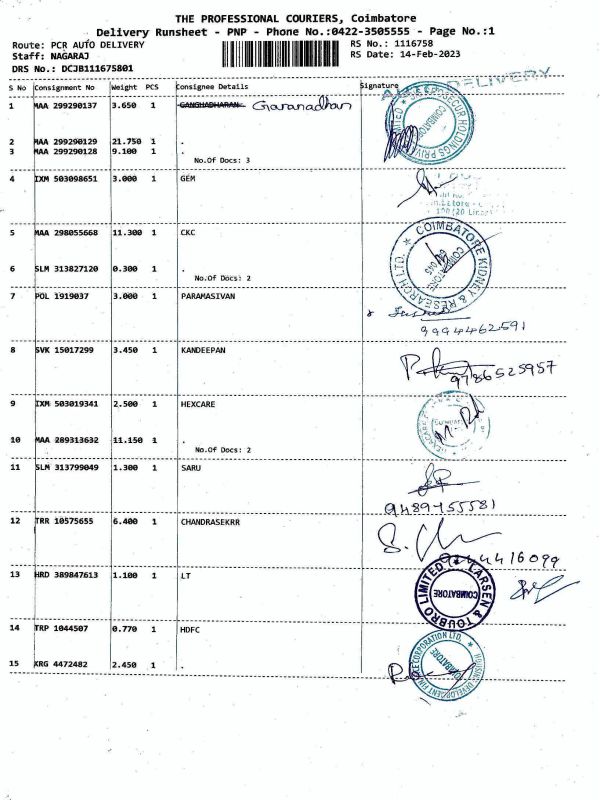 THE PROFESSIONAL COURIERS, Coimbatore
Delivery Runsheet - PNP - Phone No.:0422-3505555 - Page No.:1
Route: PCR AUTO DELIVERY RS No.: 1116758
Staff: NAGARAJ RS Date: 14-Feb-2023
DRS No.: DCJB111675801
S No Consignment No Weight PCS Consignee Details Signature
DELIVERY
1 MAA 299290137 3.650 1 GANGHADHARAN
COIMBATORE
2 MAA 299290129 21.750 1 .
3 MAA 299290128 9.100 1 .
No.Of Docs: 3
4 IXM 503098651 3.000 1 GEM
5 MAA 298055668 11.300 1 CKC
COIMBATORE KIDNEY & RESEARCH LTD.
COIMBATORE
6 SLM 313827120 0.300 1 .
No.Of Docs: 2
7 POL 1919037 3.000 1 PARAMASIVAN
9994462591
8 SVK 15017299 3.450 1 KANDEEPAN
9786525957
9 IXM 503019341 2.500 1 HEXCARE
10 MAA 289313632 11.150 1 .
No.Of Docs: 2
11 SLM 313799049 1.300 1 SARU
9489755581
12 TRR 10575655 6.400 1 CHANDRASEKRR
13 HRD 389847613 1.100 1 LT
LARSEN & TOUBRO LIMITED
COIMBATORE
14 TRP 1044507 0.770 1 HDFC
HOUSING DEVELOPMENT FINANCE CORPORATION LTD.
COIMBATORE
15 KRG 4472482 2.450 1 .